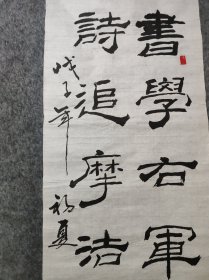 書學右軍
詩追摩诘
戊子年初夏